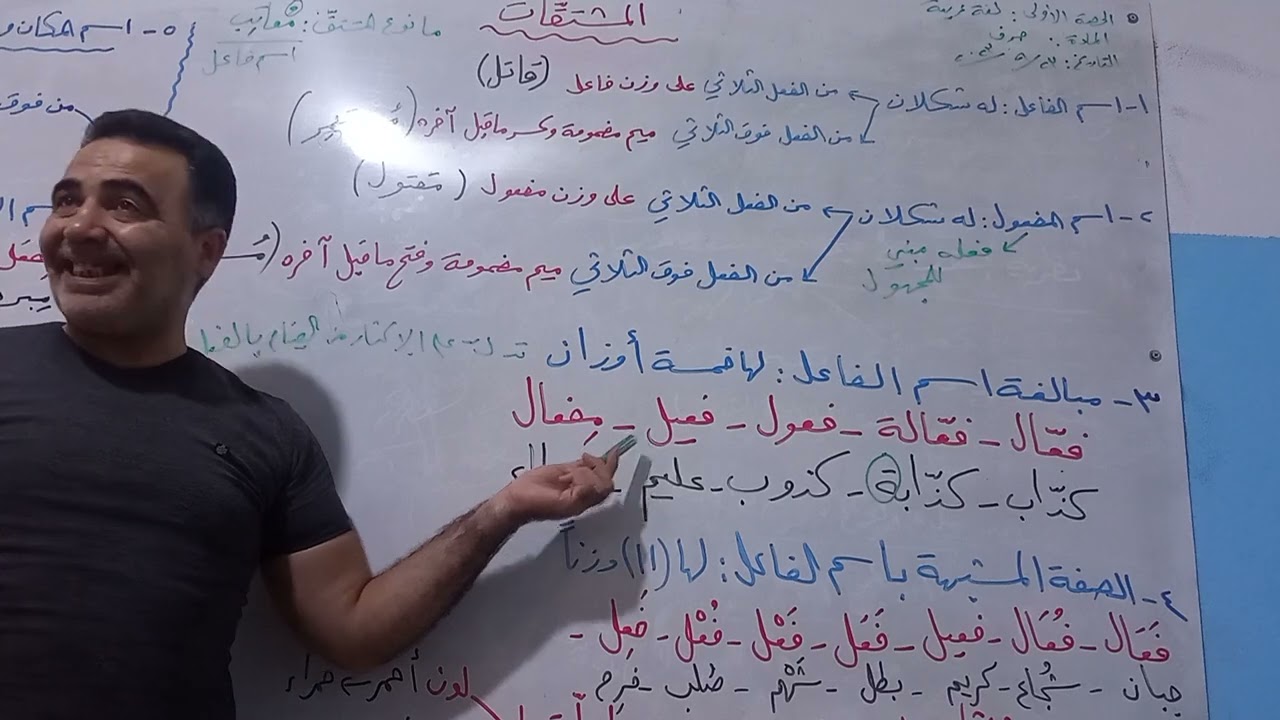 الحصة الأولى: لغة عربية
المادة: صرف
التاريخ:
المشتقات
ما نوع المشتق: معاتِب
اسم فاعل
٥- اسم المكان و
من فوق
١- اسم الفاعل: له شكلان
من الفعل الثلاثي على وزن فاعل (قاتل)
من الفعل فوق الثلاثي ميم مضمومة وكسر ما قبل آخره
٢- اسم المفعول: له شكلان
فعله مبني للمجهول
من الفعل الثلاثي على وزن مفعول (مقتول)
من الفعل فوق الثلاثي ميم مضمومة وفتح ما قبل آخره (مُـ
٣- مبالغة اسم الفاعل: لها خمسة أوزان تدل على الإكثار من القيام بالفعل
فعّال - فعّالة - فعول - فعيل - مِفعال
كذّاب - كذّابة - كذوب - عليم
٤- الصفة المشبهة باسم الفاعل: لها (١١) وزناً
فَعَال - فُعَال - فعيل - فَعَل - فَعْل - فُعْل - فَعِل -
جبان - شُجاع - كريم - بطل - شَهْم - صُلب - فَرِح
لون أحمر حمراء